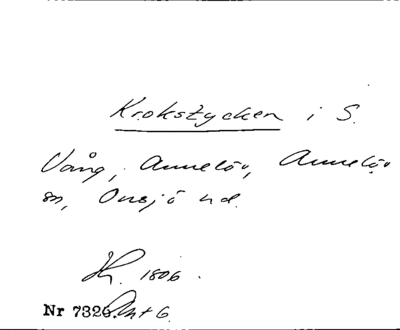 Krokstycken i S.
Vång, Annelöv, Annelöv
sn, Onsjö hd.
1806.
Nr 7326